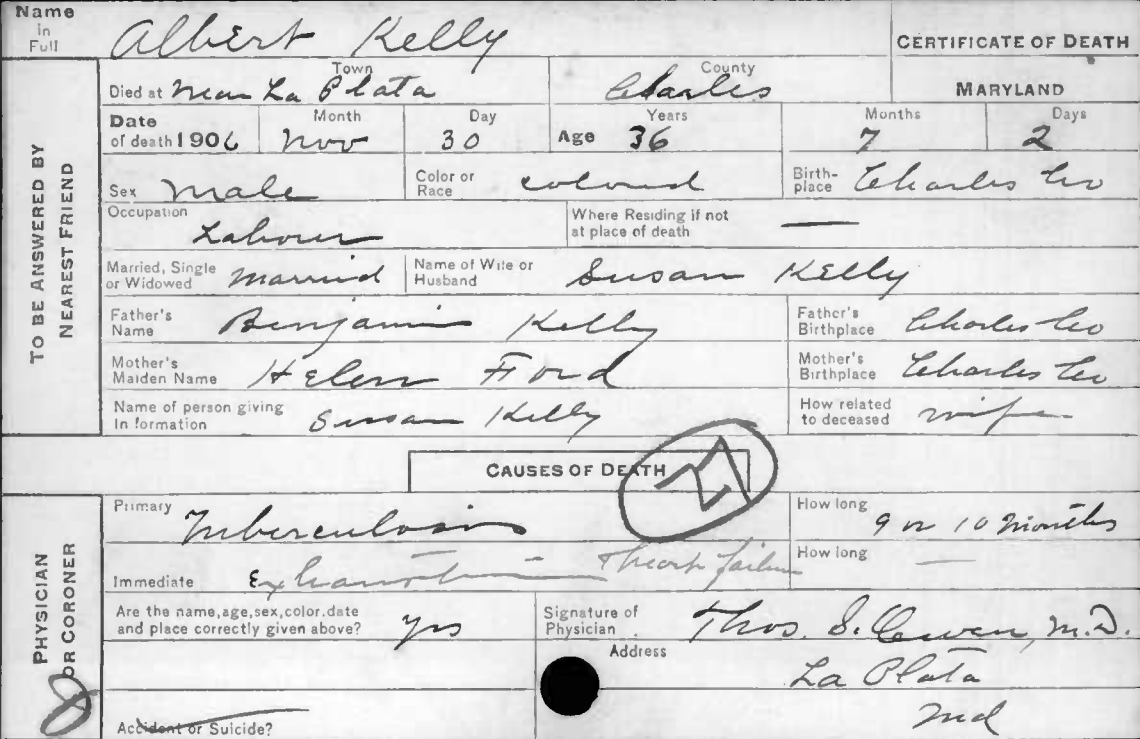 Name in Full Albert Kelly
CERTIFICATE OF DEATH
TO BE ANSWERED BY NEAREST FRIEND
Died at near La Plata Town Charles County MARYLAND
Date of death 1906 Month Nov Day 30 Age Years 36 Months 7 Days 2
Sex Male Color or Race colored Birth-place Charles Co
Occupation Labourer Where Residing if not at place of death —
Married, Single or Widowed Married Name of Wife or Husband Susan Kelly
Father's Name Benjamin Kelly Father's Birthplace Charles Co
Mother's Maiden Name Helen Ford Mother's Birthplace Charles Co
Name of person giving In formation Susan Kelly How related to deceased wife
CAUSES OF DEATH
PHYSICIAN OR CORONER
Primary Tuberculosis How long 9 or 10 months
Immediate Exhaustion — Heart failure How long —
Are the name, age, sex, color, date and place correctly given above? yes Signature of Physician Thos. S. Owen, M.D.
Address La Plata
Md
Accident or Suicide?
8